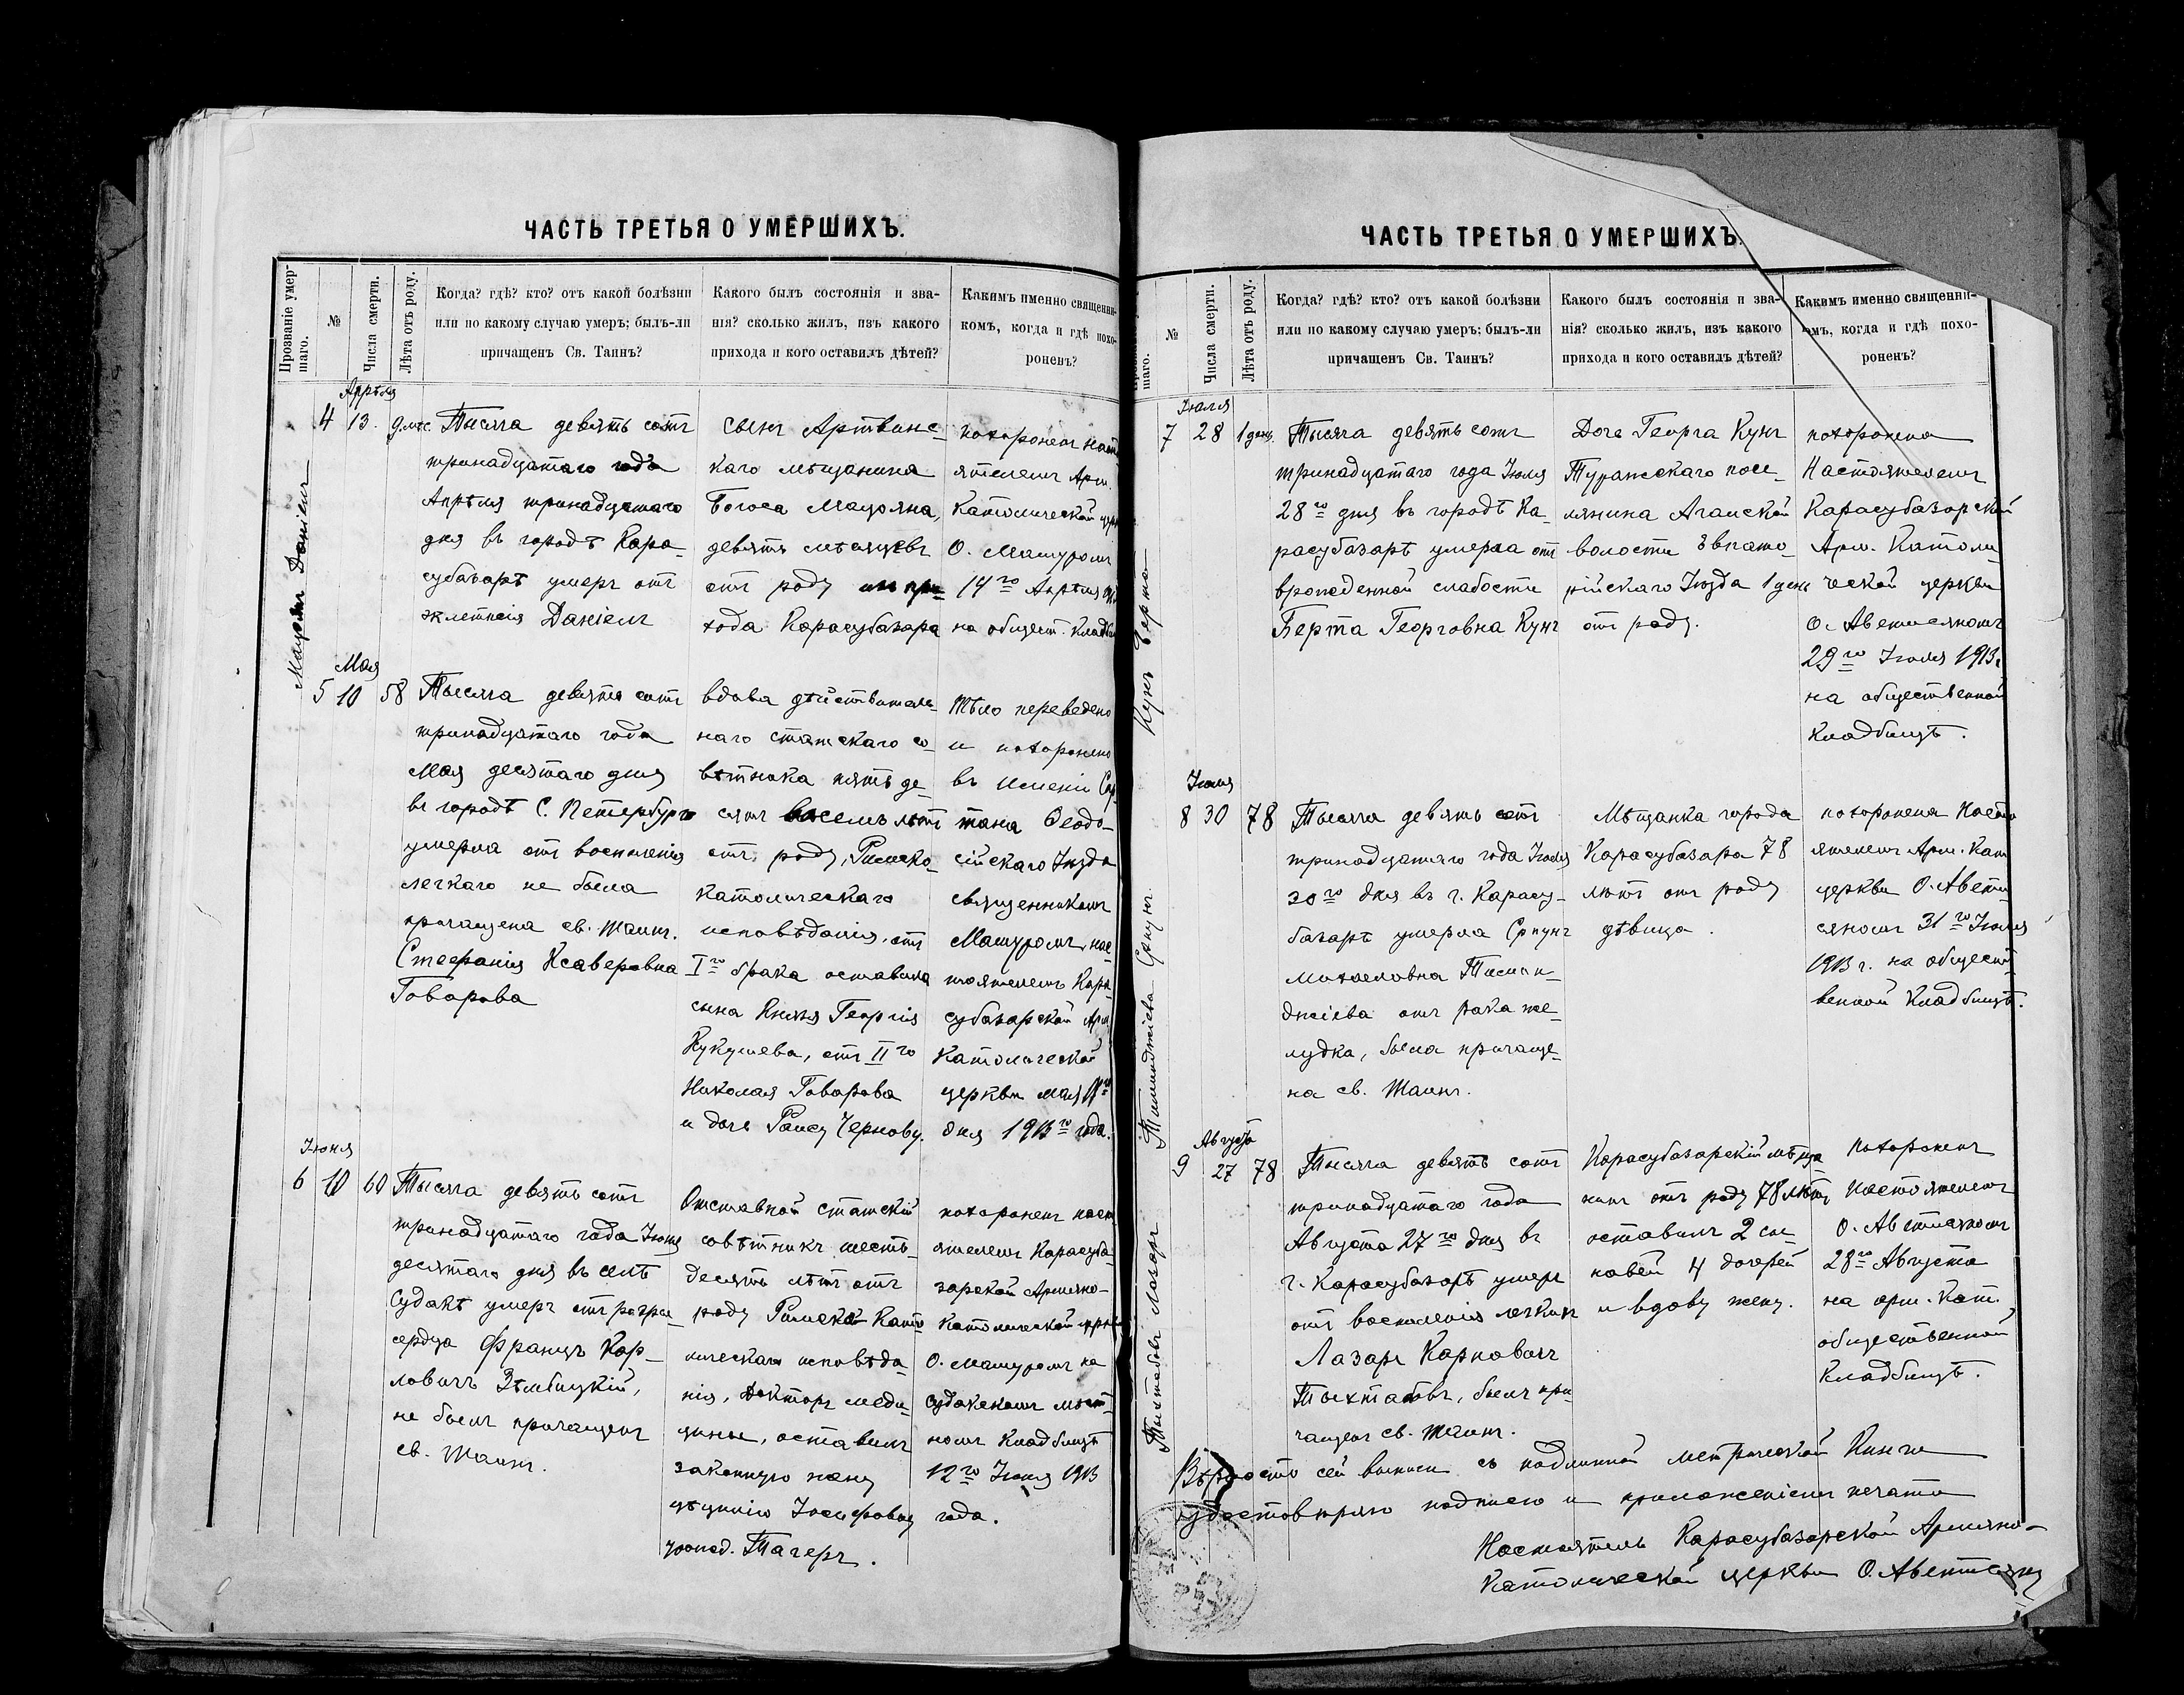 ЧАСТЬ ТРЕТЬЯ О УМЕРШИХЪ.
Прозваніе умер-
шаго.
№
Числа смерти.
Лѣта отъ роду.
Когда? гдѣ? кто? отъ какой болѣзни
или по какому случаю умеръ; былъ-ли
причащенъ Св. Таинъ?
Какого былъ состоянія и зва-
нія? сколько жилъ, изъ какого
прихода и кого оставилъ дѣтей?
Какимъ именно священни-
комъ, когда и гдѣ похо-
роненъ?
Даніилъ
Апрѣля
4 13. 9 мѣс.
Тысяча девять сотъ
тринадцатаго года
Апрѣля тринадцатаго
дня въ городѣ Кара-
субазарѣ умеръ отъ
Даніилъ
сынъ Артвинс-
каго мѣщанина
Богоса
девять мѣсяцевъ
отъ роду изъ при-
хода Карасубазара
похороненъ наст
ятелемъ Арм.
Католической церк
О. Машуромъ
14го Апрѣля
на общест. кладби
Мая
5 10 58
Тысяча девять сотъ
тринадцатаго года
Мая десятаго дня
въ городѣ С. Петербургѣ
умерла отъ воспаленія
легкаго не была
причащена св. Таинъ.
Стефанія Ксаверовна
Говорова
вдова дѣйствитель-
наго статскаго со-
вѣтника пять де-
сять восемь лѣтъ
отъ роду, Римско
католическаго
исповѣданія, отъ
Iго брака оставила
сына Князя Георгія
отъ IIго
Николая Говорова
и дочь Раису Чернову.
Тѣло переведено
и похоронено
въ имѣніи
Ѳеодо-
сійскаго Уѣзда
священникомъ
Машуромъ, нас
тоятелемъ Кара-
субазарской Арм
Католической
церкви Мая
дня 1913го года.
Іюня
6 10 60
Тысяча девять сотъ
тринадцатаго года Іюня
десятаго дня въ селѣ
Судакѣ умеръ отъ
сердца Францъ Кар-
ловичъ Зѣмбицкій,
не былъ причащенъ
св. Таинъ.
Отставной статскій
совѣтникъ шесть-
десятъ лѣтъ отъ
роду Римско Като
лическаго исповѣда
нія, Докторъ меди-
цины, оставилъ
законную жену
Іосифовну
урожд. Тагеръ.
похороненъ наст
ятелемъ Карасуба-
зарской Армяно-
Католической церкви
О. Машуромъ на
Судакскомъ мѣст-
номъ кладбищѣ
12го Іюня 1913
года.
ЧАСТЬ ТРЕТЬЯ О УМЕРШИХЪ.
шаго.
№
Числа смерти.
Лѣта отъ роду.
Когда? гдѣ? кто? отъ какой болѣзни
или по какому случаю умеръ; былъ-ли
причащенъ Св. Таинъ?
Какого былъ состоянія и зва-
нія? сколько жилъ, изъ какого
прихода и кого оставилъ дѣтей?
Какимъ именно священни-
омъ, когда и гдѣ похо-
роненъ?
Кунъ Берта
Іюля
7 28 1 день.
Тысяча девять сотъ
тринадцатаго года Іюля
28го дня въ городѣ Ка-
расубазарѣ умерла отъ
врожденной слабости
Берта Георговна Кунъ
Дочь Георга Кунъ
посе-
лянина
волости Эвпато-
рійскаго Уѣзда 1 день
отъ роду.
похоронена
Настоятелемъ
Карасубазарской
Арм. Католи
ческой церкви
О. Аветисяномъ
29го Іюля 1913г
на общественной
кладбищѣ.
Іюля
8 30 78
Тысяча девять сотъ
тринадцатаго года Іюля
30го дня въ г. Карасу-
базарѣ умерла Српунъ
отъ рака же-
лудка, была причаще-
на св. Таинъ.
Мѣщанка города
Карасубазара 78
лѣтъ отъ роду
дѣвица.
похоронена Насто
ятелемъ Арм. Кат
церкви О. Авети
сяномъ 31го Іюля
1913 г. на общест
венной кладбищѣ.
Лазарь
Августа
9 27 78
Тысяча девять сотъ
тринадцатаго года
Августа 27го дня въ
г. Карасубазарѣ умеръ
отъ воспаленія легкихъ
Лазарь Карповичъ
Тыхтабовъ, былъ при
чащенъ св. Таинъ.
Карасубазарскій мѣща
нинъ отъ роду 78 лѣтъ,
оставилъ 2 сы-
новей 4 дочерей
и вдову жену.
похороненъ
Настоятелемъ
О. Аветисяномъ
28го Августа
на арм. кат.
общественной
кладбищѣ.
Вѣрность сей выписи съ подлинной метрической Книги
удостовѣряю подписью и приложеніемъ печати
Настоятель Карасубазарской Армяно-
Католической церкви О. Аветисянъ